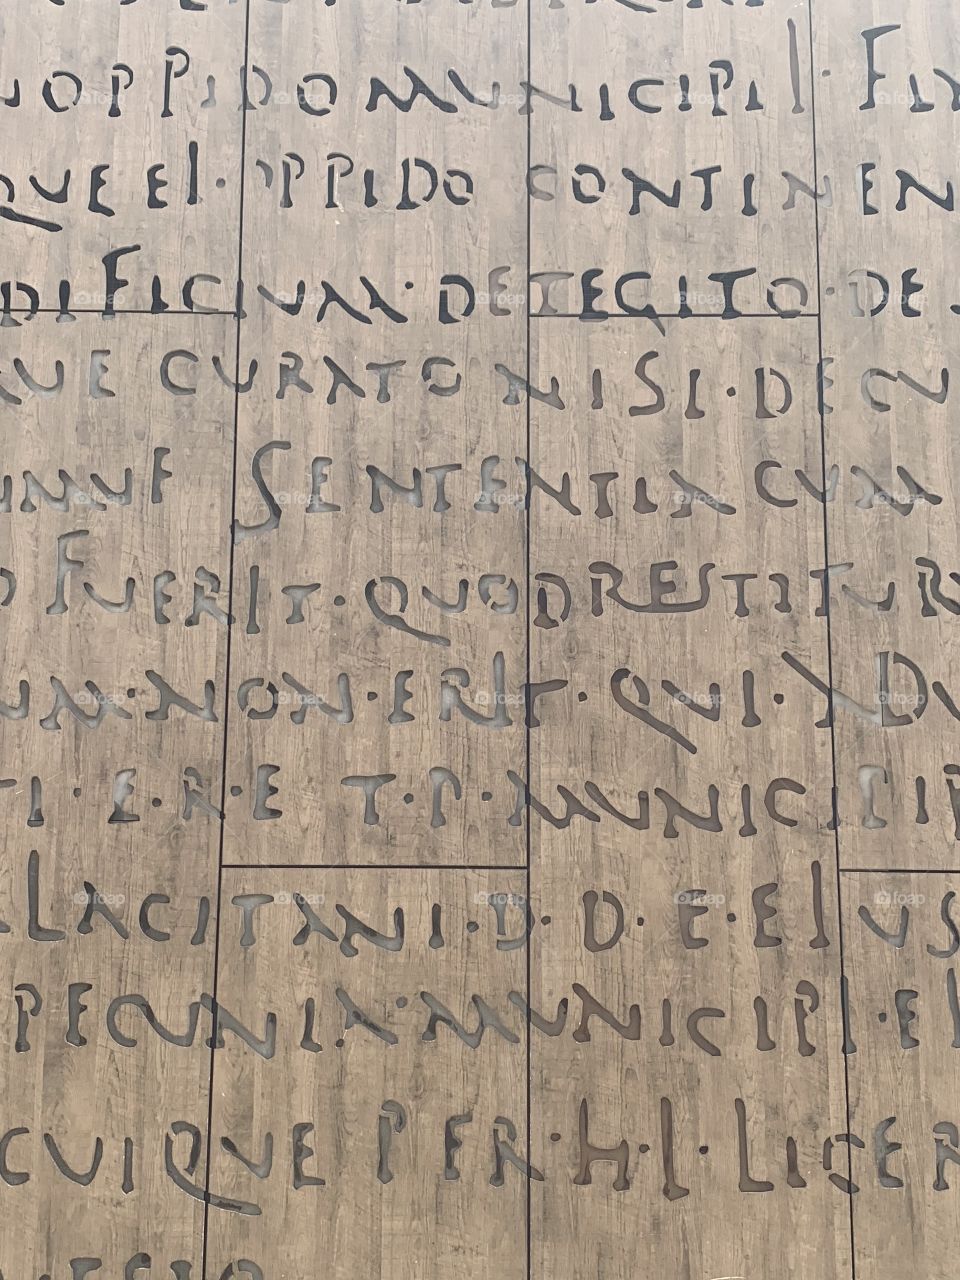 OPPIDO MUNICIPII · FL
QUE EI · OPPIDO CONTINEN
DIFICIUM · DETEGITO · DE
UE CURATO NISI · DECU
UMUE SENTENTIA CUM
FUERIT · QUOD RESTITUTUR
UM · NON · ERIT · QUI · ADU
TI · E · R · E T · P · MUNICIPI
LACITANI · D · D · E · EIUS
PECUNIA · MUNICIPI · EI
CUIQUE PER · H · L · LICER